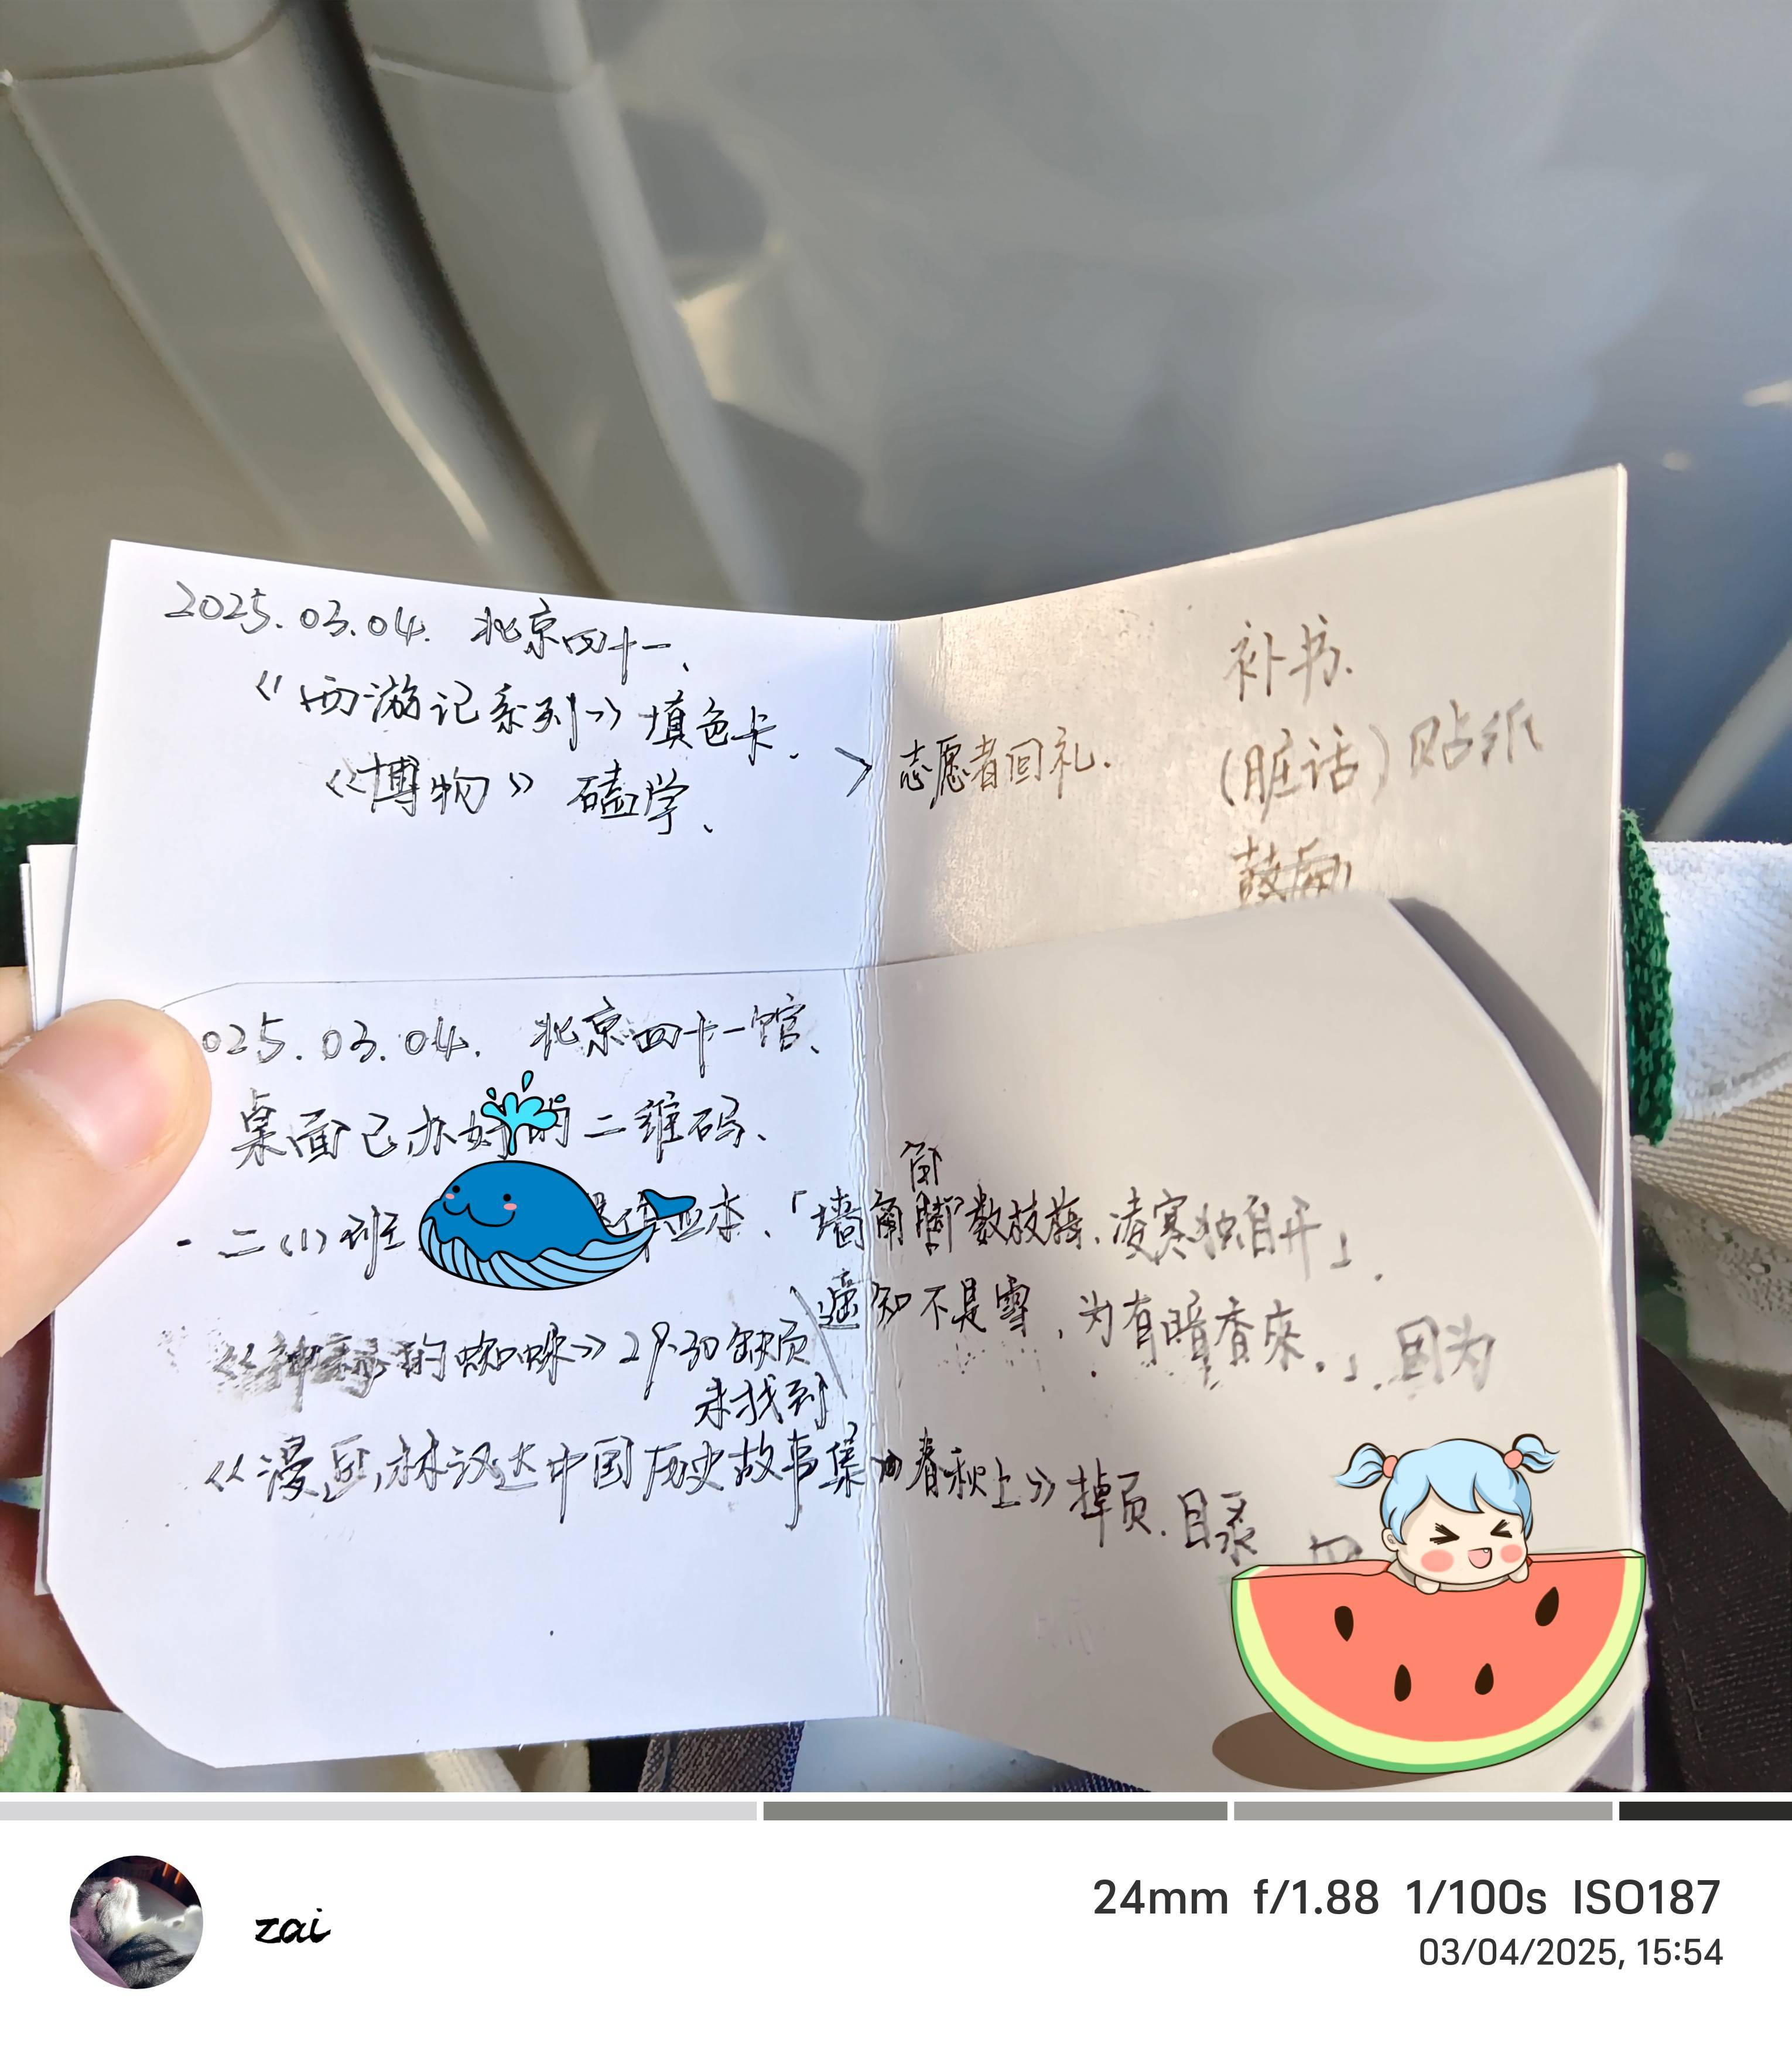 2025.03.04. 北京四十一、
《西游记系列》填色卡.
《博物》 磕学、
> 志愿者回礼.
补书.
(脏话)贴纸
025.03.04. 北京四十一馆、
桌面已办好的二维码、
- 二(1)班 「墙角数枝梅.凌寒独自开」.
遥知不是雪,为有暗香来.」.因为
《神秘的蜘蛛》29.30缺页
未找到
《漫画林汉达中国历史故事集 春秋上》掉页.目录
zai
24mm f/1.88 1/100s ISO187
03/04/2025, 15:54